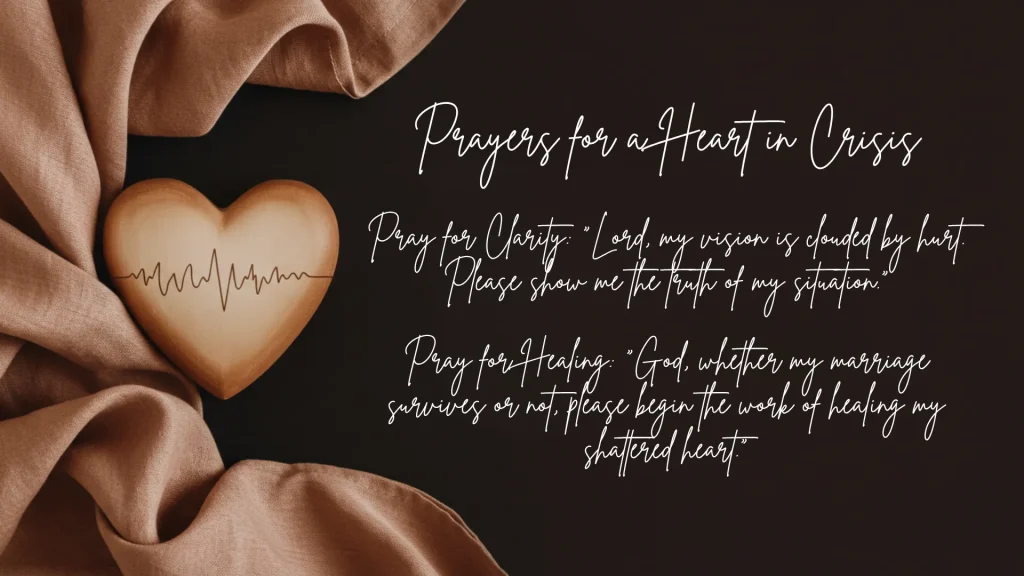 Prayers for a Heart in Crisis
Pray for Clarity: "Lord, my vision is clouded by hurt.
Please show me the truth of my situation."
Pray for Healing: "God, whether my marriage
survives or not, please begin the work of healing my
shattered heart."